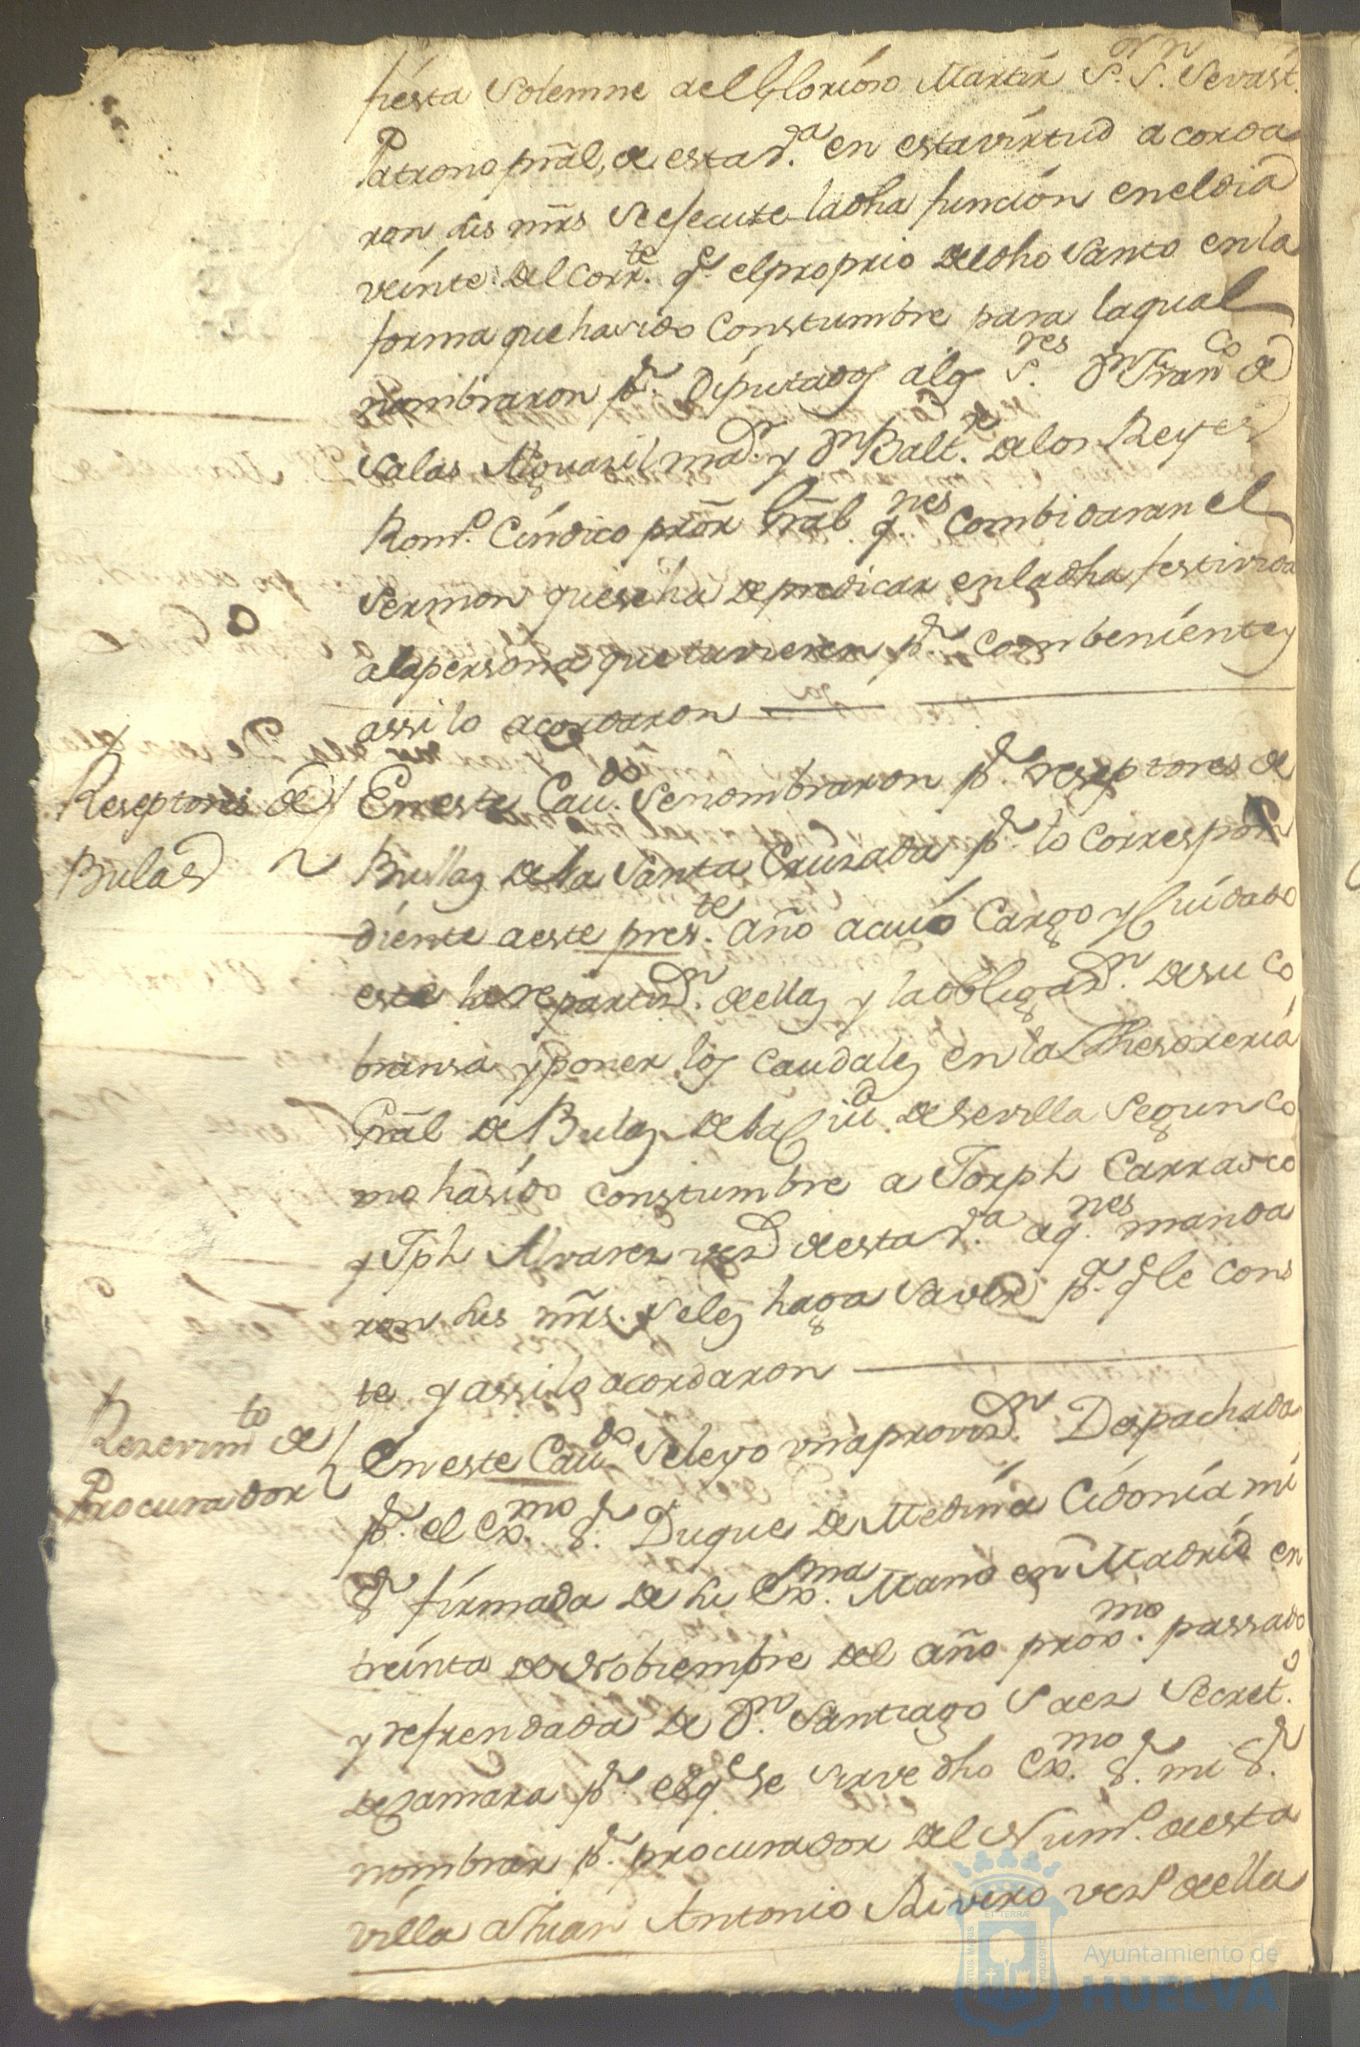 fiesta Solemne del Glorioso Martir S.r S.n Sevast.
Patrono pral, de esta v.a en esta virtud acorda
ron sus mrs se execute la dha función en el dia
veinte del Corr.te q.e el proprio del dho santo en la
forma que ha sido Constumbre para la qual
nombraron p.r Diputados a los S.res D.n Fran.co de
Salas Alguasil ma.r y D.n Balt.r de los Reyes
Rom.o Cindico pror Gral q.nes Combidaran el
Sermon que se ha de predicar en la dha festivida
a la persona que tuvieren p.r combeniente y
assi lo acordaron
Reseptores de
Bulas
En este Cau.do se nombraron p.r reseptores de
Bullas de la Santa Cruzada p.r lo correspon
diente a este pres.te año a cuio Cargo y Cuidado
este la repartiz.n de ellas y la obligaz.n de su co
bransa y poner los caudales en la Thesoreria
Gral de Bulas de la Ciu.d de Sevilla Segun co
mo ha sido constumbre a Joseph Carrasco
y Jph Alvarez vez.s de esta v.a a q.nes manda
ron sus mrs. se les haga saver p.a q.e le cons
te y assi lo acordaron
Rezevim.to de
Procurador
En este Cau.do se leyo una proviz.n Despachada
p.r el Ex.mo S.r Duque de Medina Cidonia mi
S.r firmada de su Ex.ma Mano en Madrid en
treinta de Nobiembre del año prox.mo passado
y refrendada de D.n Santiago Saez Secret.o
de Camara p.r el q.e se sirve dho Ex.mo S.r mi S.r
nombrar p.r procurador del Num.o de esta
villa a Juan Antonio Rivero vez.o de ella
Ayuntamiento de
HUELVA